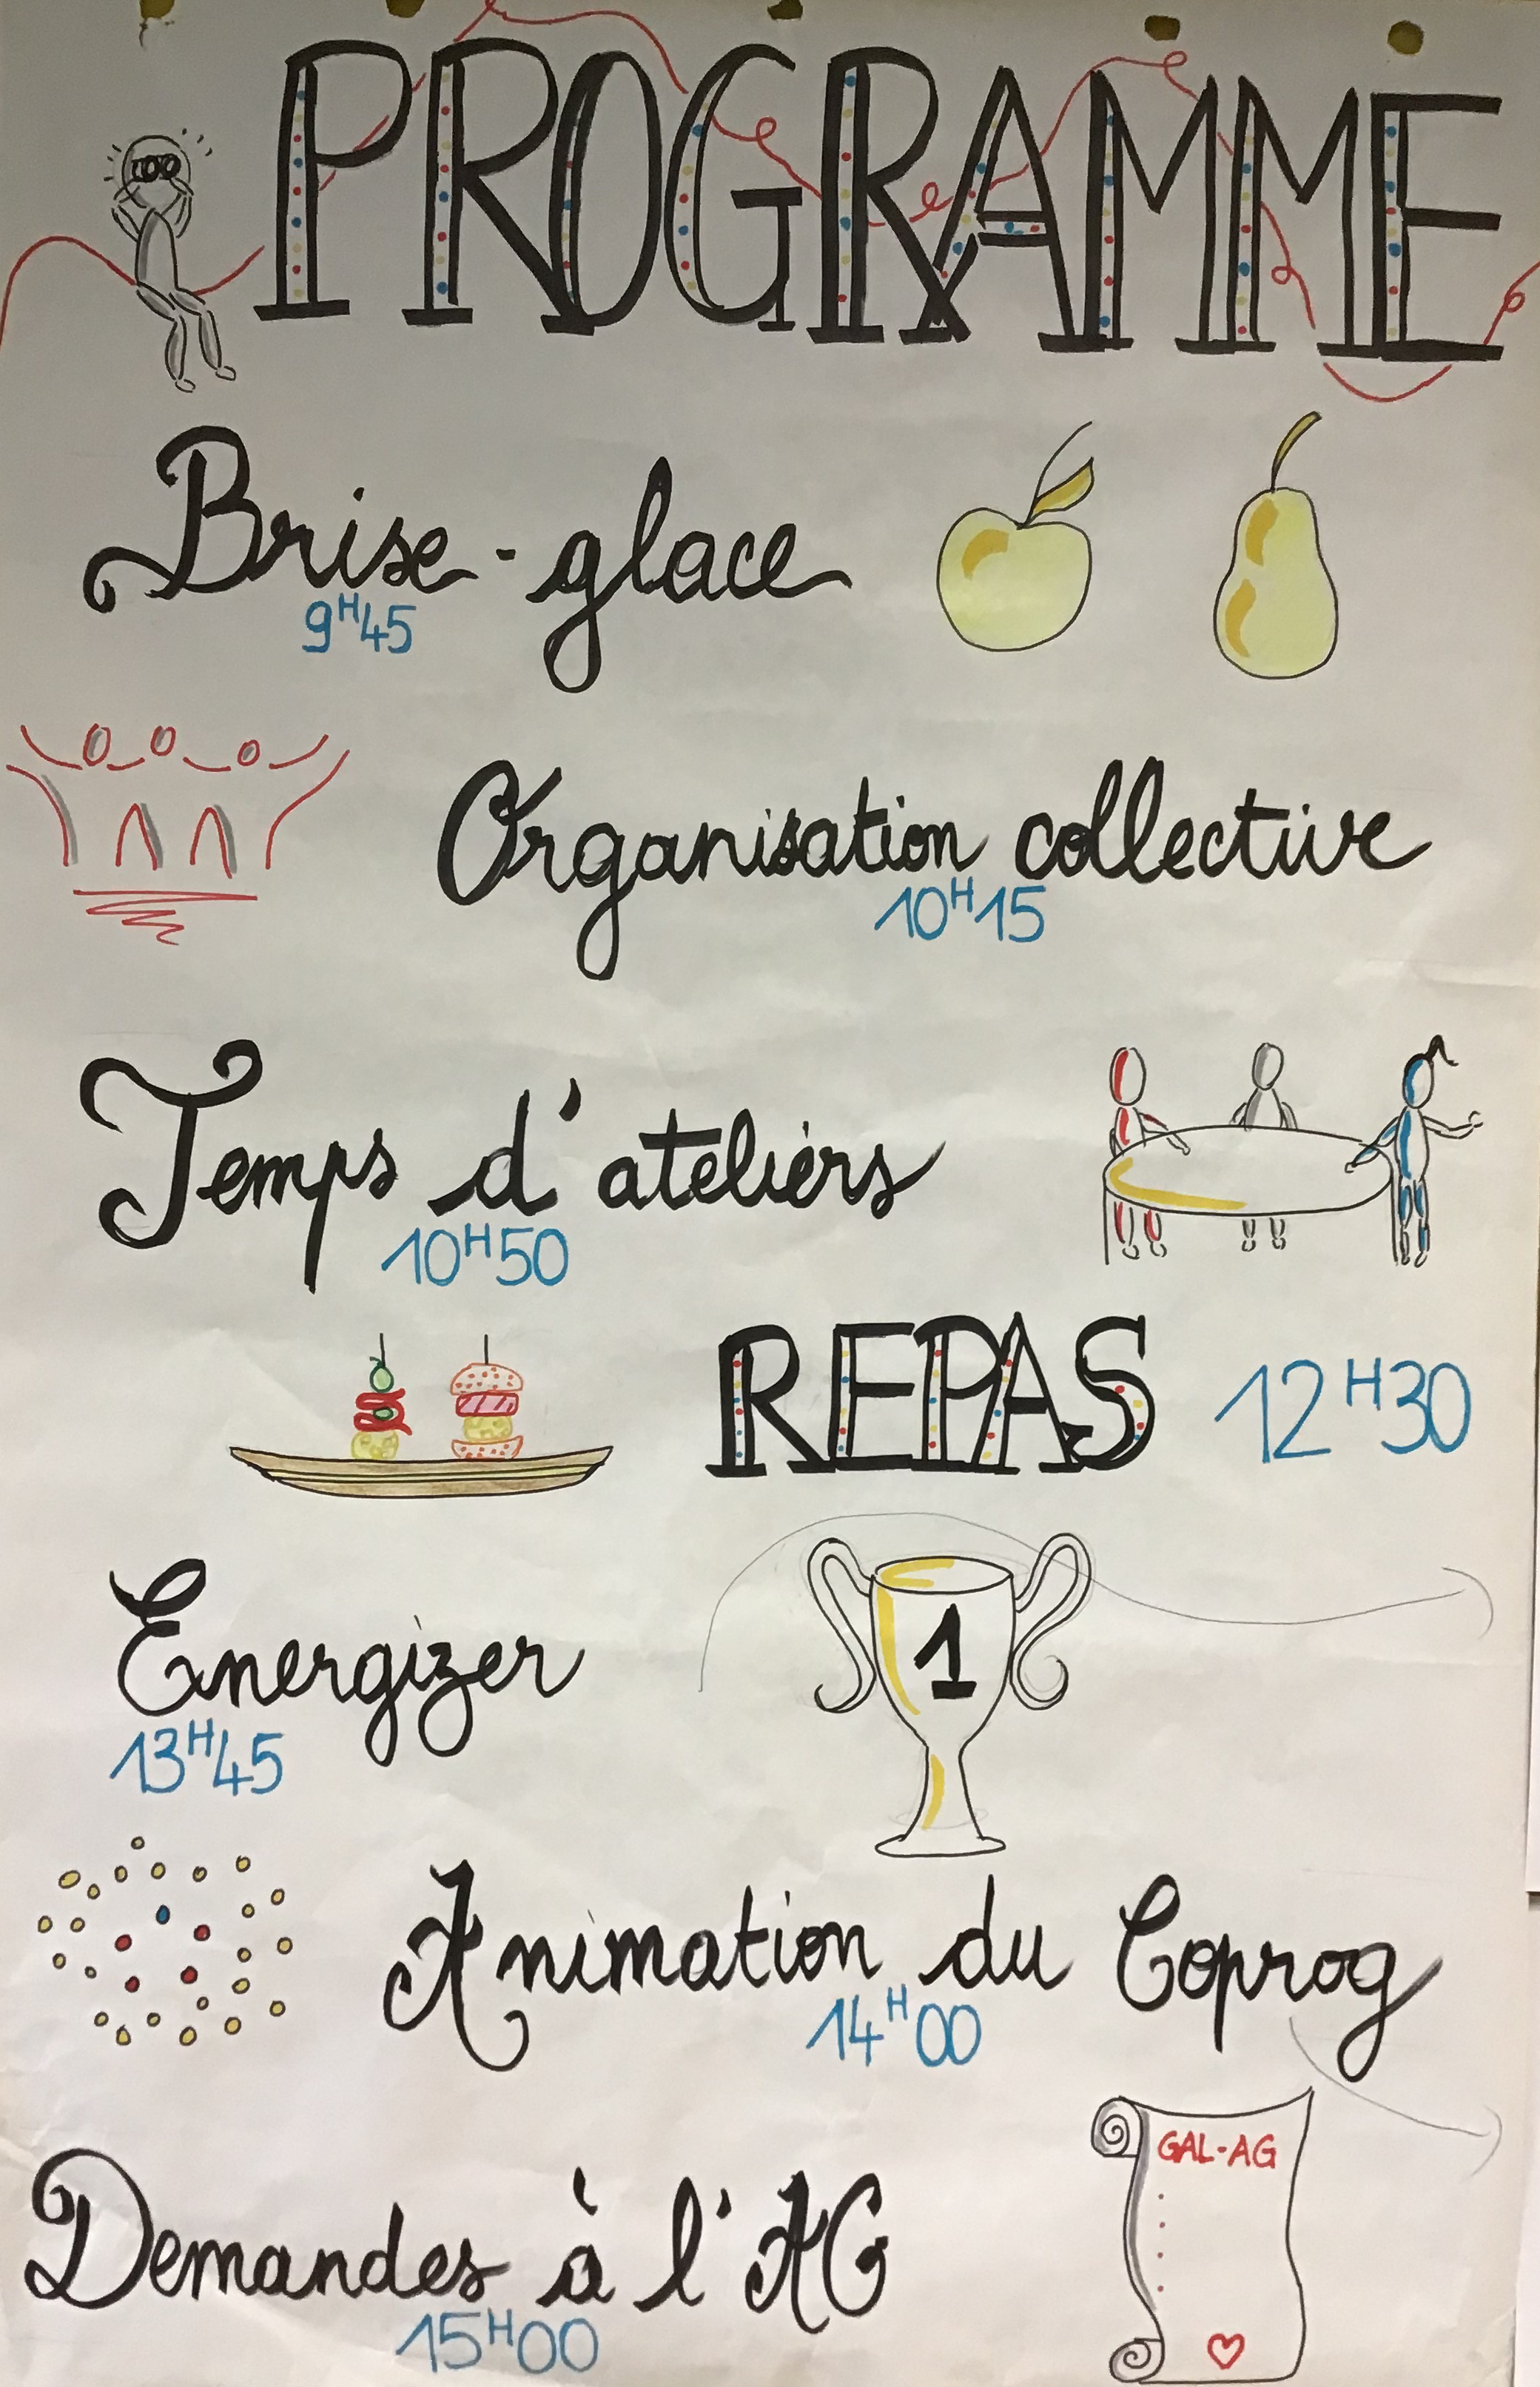 PROGRAMME
Brise-glace
9H45
Organisation collective
10H15
Temps d'ateliers
10H50
REPAS 12H30
Energizer
13H45
1
Animation du Coprog
14H00
GAL-AG
Demandes à l'AG
15H00